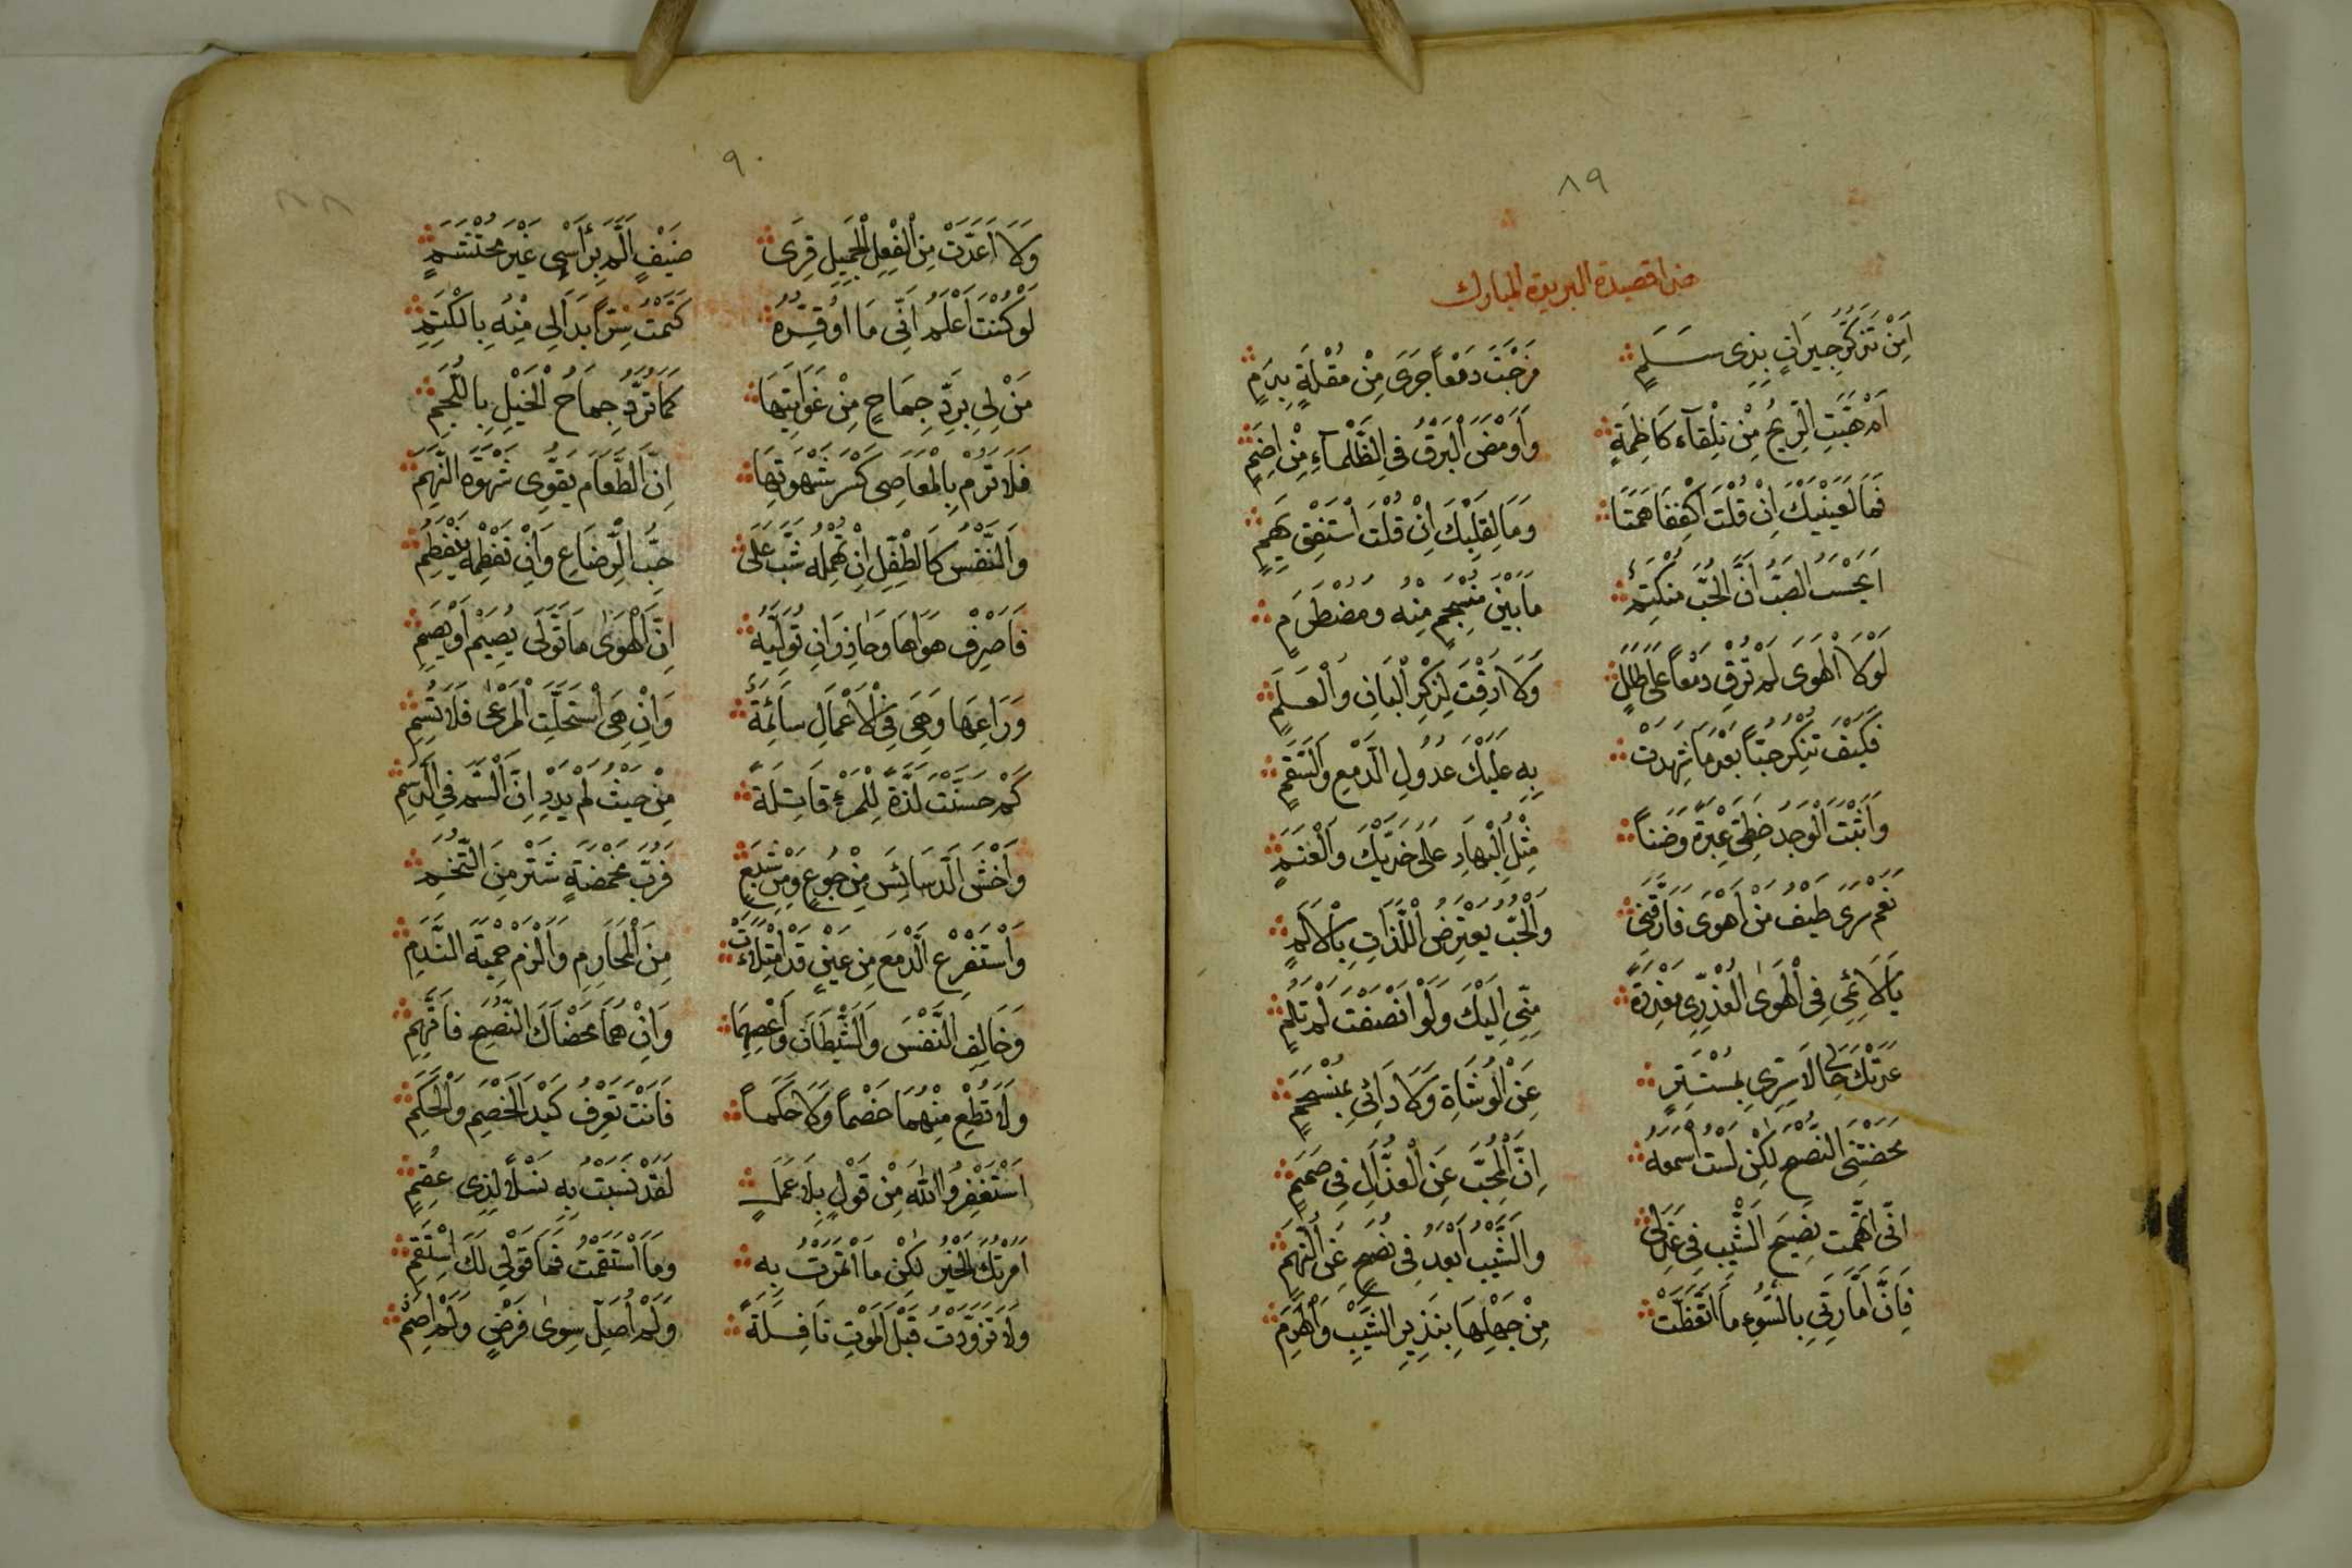 ٨٩
هذا قصيدة البريدة المبارك
اَمِنْ تَذَكُّرِ جِيرَانٍ بِذِى سَلَمٍ مَزَجْتَ دَمْعاً جَرَى مِنْ مُقْلَةٍ بِدَمٍ
اَمْ هَبَّتِ الرِّيحُ مِنْ تِلْقَاءِ كَاظِمَةٍ وَاَوْمَضَ الْبَرْقُ فِى الظَّلْمَآءِ مِنْ اِضَمٍ
فَمَا لِعَيْنَيْكَ اِنْ قُلْتَ اكْفُفَا هَمَتَا وَمَا لِقَلْبِكَ اِنْ قُلْتَ اسْتَفِقْ يَهِمٍ
اَيَحْسَبُ الصَّبُّ اَنَّ الْحُبَّ مُنْكَتِمٌ مَا بَيْنَ مُنْسَجِمٍ مِنْهُ وَمُضْطَرَمٍ
لَوْلَا الْهَوَى لَمْ تُرِقْ دَمْعاً عَلَى طَلَلٍ وَلَا اَرِقْتَ لِذِكْرِ الْبَانِ وَالْعَلَمِ
فَكَيْفَ تُنْكِرُ حُبّاً بَعْدَ مَا شَهِدَتْ بِهِ عَلَيْكَ عُدُولُ الدَّمْعِ وَالسَّقَمِ
وَاَثْبَتَ الْوَجْدُ خَطَّىْ عَبْرَةٍ وَضَناً مِثْلَ الْبَهَارِ عَلَى خَدَّيْكَ وَالْعَنَمِ
نَعَمْ سَرَى طَيْفُ مَنْ اَهْوَى فَارَّقَنِى وَالْحُبُّ يَعْتَرِضُ اللَّذَّاتِ بِالْاَلَمِ
يَا لَائِمِى فِى الْهَوَى الْعُذْرِىِّ مَعْذِرَةً مِنِّى اِلَيْكَ وَلَوْ اَنْصَفْتَ لَمْ تَلُمِ
عَدَتْكَ حَالِى لَا سِرِّى بِمُسْتَتِرٍ عَنِ الْوُشَاةِ وَلَا دَائِى بِمُنْسَحِمٍ
مَحَضْتَنِى النُّصْحَ لٰكِنْ لَسْتُ اَسْمَعُهُ اِنَّ الْمُحِبَّ عَنِ الْعُذَّالِ فِى صَمَمٍ
اِنِّى اتَّهَمْتُ نَصِيحَ الشَّيْبِ فِى عَذَلِى وَالشَّيْبُ اَبْعَدُ فِى نُصْحٍ عَنِ التُّهَمِ
فَاِنَّ اَمَّارَتِى بِالسُّوءِ مَا اتَّعَظَتْ مِنْ جَهْلِهَا بِنَذِيرِ الشَّيْبِ وَالْهَرَمِ
٩٠
٨٨
وَلَا اَعَدَّتْ مِنَ الْفِعْلِ الْجَمِيلِ قِرَى ضَيْفٍ اَلَمَّ بِرَأْسِى غَيْرَ مُحْتَشَمٍ
لَوْ كُنْتُ اَعْلَمُ اَنِّى مَا اُوَقِّرُهُ كَتَمْتُ سِرّاً بَدَا لِى مِنْهُ بِالْكَتَمِ
مَنْ لِى بِرَدِّ جِمَاحٍ مِنْ غَوَايَتِهَا كَمَا تُرَدُّ جِمَاحُ الْخَيْلِ بِاللُّجُمِ
فَلَا تَرُمْ بِالْمَعَاصِى كَسْرَ شَهْوَتِهَا اِنَّ الطَّعَامَ يُقَوِّى شَهْوَةَ النَّهِمِ
وَالنَّفْسُ كَالطِّفْلِ اِنْ تُهْمِلْهُ شَبَّ عَلَى حُبِّ الرَّضَاعِ وَاِنْ تَفْطِمْهُ يَنْفَطِمِ
فَاصْرِفْ هَوَاهَا وَحَاذِرْ اَنْ تُوَلِّيَهُ اِنَّ الْهَوَى مَا تَوَلَّى يُصْمِ اَوْ يَصِمِ
وَرَاعِهَا وَهِىَ فِى الْاَعْمَالِ سَائِمَةٌ وَاِنْ هِىَ اسْتَحْلَتِ الْمَرْعَى فَلَا تُسِمِ
كَمْ حَسَّنَتْ لَذَّةً لِلْمَرْءِ قَاتِلَةً مِنْ حَيْثُ لَمْ يَدْرِ اَنَّ السَّمَّ فِى الدَّسَمِ
وَاخْشَ الدَّسَائِسَ مِنْ جُوعٍ وَمِنْ شِبَعٍ فَرُبَّ مَخْمَصَةٍ شَرٌّ مِنَ التُّخَمِ
وَاسْتَفْرِغِ الدَّمْعَ مِنْ عَيْنٍ قَدِ امْتَلَاَتْ مِنَ الْمَحَارِمِ وَالْزَمْ حِمْيَةَ النَّدَمِ
وَخَالِفِ النَّفْسَ وَالشَّيْطَانَ وَاعْصِهِمَا وَاِنْ هُمَا مَحَضَاكَ النُّصْحَ فَاتَّهِمِ
وَلَا تُطِعْ مِنْهُمَا خَصْماً وَلَا حَكَماً فَاَنْتَ تَعْرِفُ كَيْدَ الْخَصْمِ وَالْحَكَمِ
اَسْتَغْفِرُ اللّٰهَ مِنْ قَوْلٍ بِلَا عَمَلٍ لَقَدْ نَسَبْتُ بِهِ نَسْلاً لِذِى عُقُمٍ
اَمَرْتُكَ الْخَيْرَ لٰكِنْ مَا ائْتَمَرْتُ بِهِ وَمَا اسْتَقَمْتُ فَمَا قَوْلِى لَكَ اسْتَقِمِ
وَلَا تَزَوَّدْتُ قَبْلَ الْمَوْتِ نَافِلَةً وَلَمْ اُصَلِّ سِوٰى فَرْضٍ وَلَمْ اَصُمِ